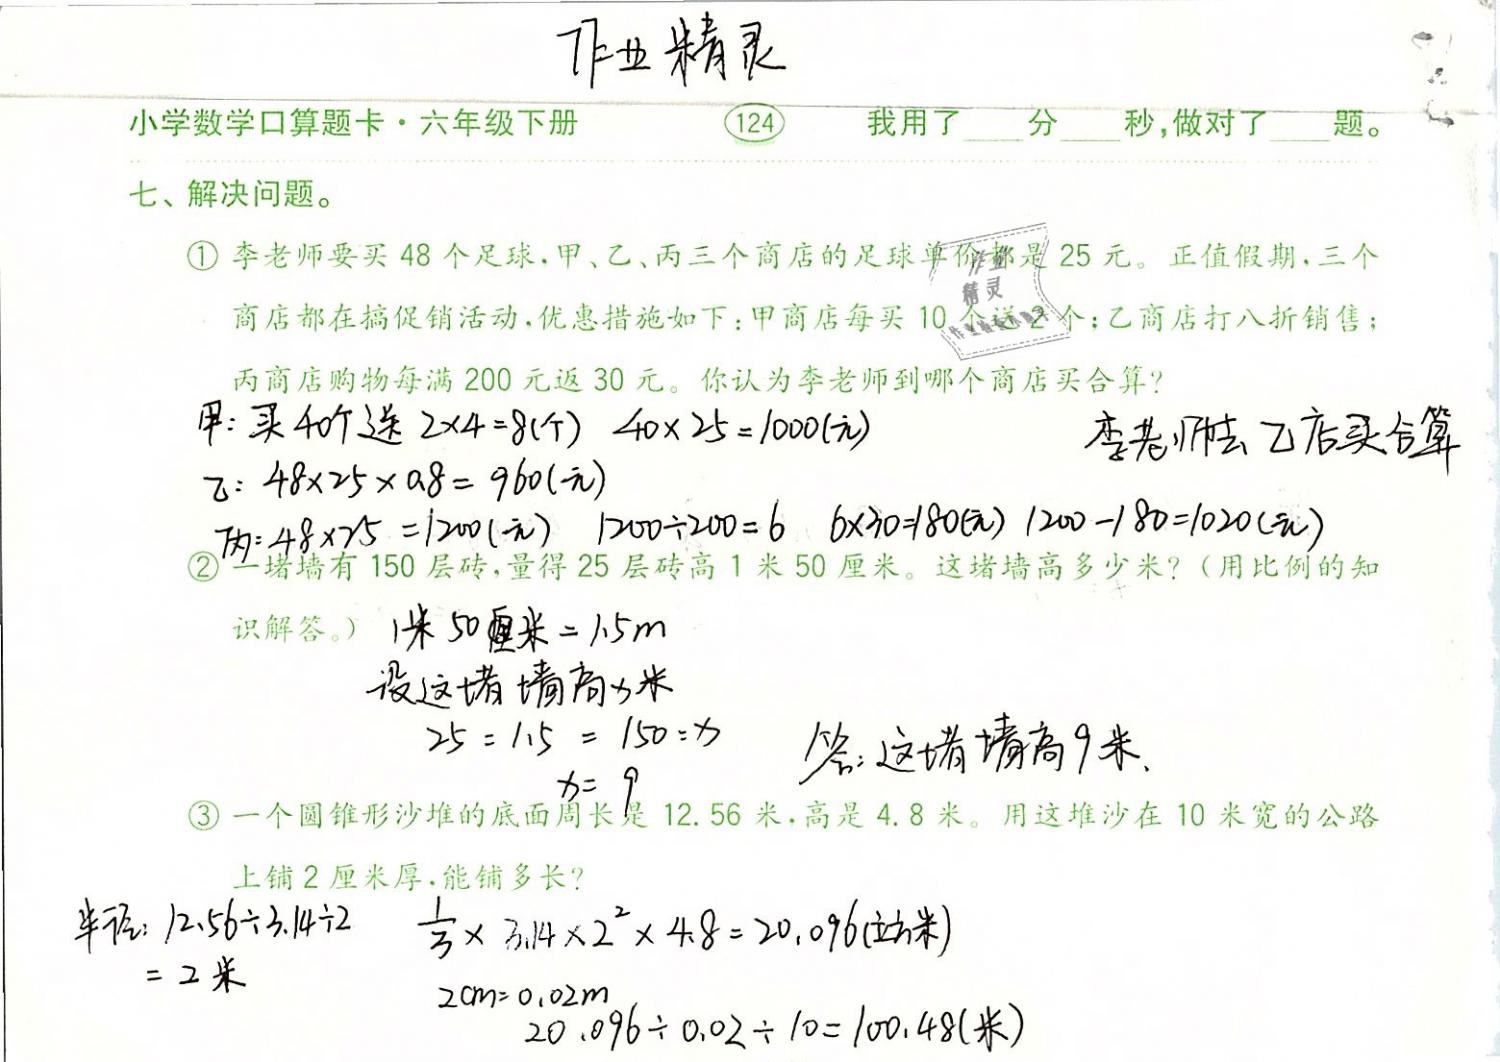 作业精灵
小学数学口算题卡·六年级下册 124 我用了____分____秒,做对了____题。
七、解决问题。
① 李老师要买 48 个足球,甲、乙、丙三个商店的足球单价都是 25 元。正值假期,三个
商店都在搞促销活动,优惠措施如下:甲商店每买 10 个送 2 个;乙商店打八折销售;
丙商店购物每满 200 元返 30 元。你认为李老师到哪个商店买合算?
作业
精灵
甲:买40个送 2×4=8(个) 40×25=1000(元) 李老师去乙店买合算
乙:48×25×0.8=960(元)
丙:48×25=1200(元) 1200÷200=6 6×30=180(元) 1200-180=1020(元)
② 一堵墙有 150 层砖,量得 25 层砖高 1 米 50 厘米。这堵墙高多少米?(用比例的知
识解答。) 1米50厘米=1.5m
设这堵墙高x米
25:1.5=150:x 答:这堵墙高9米.
x=9
③ 一个圆锥形沙堆的底面周长是 12.56 米,高是 4.8 米。用这堆沙在 10 米宽的公路
上铺 2 厘米厚,能铺多长?
半径:12.56÷3.14÷2 1/3×3.14×2²×4.8=20.096(立方米)
=2米
2cm=0.02m
20.096÷0.02÷10=100.48(米)